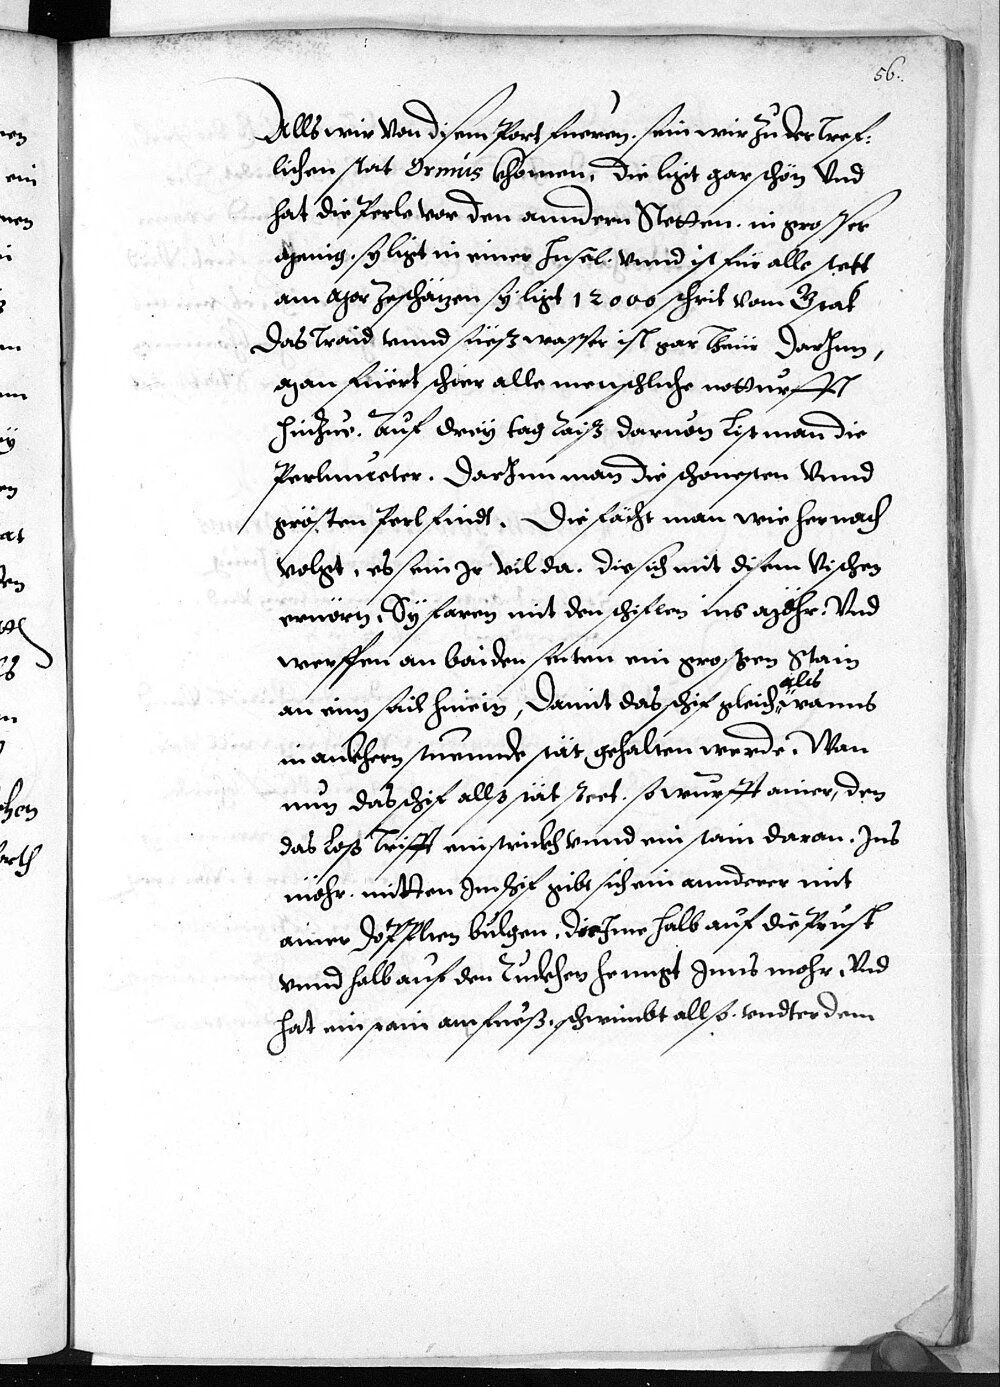 56.
Alls wir von disem Port fueren. sein wir zu der tref:
lichen stat Ormüs khomen, die ligt gar schön vnd
hat die Perle vor den anndern Stetten. in grosser
Menig. sy ligt in einer Insel. vnnd ist für alle stett
am Mör zeschätzen sy ligt 12000 schrit vom Gstat
Das traid vnnd süesz wasser ist gar theür Darinn,
Man füert schier alle menschliche notturfft
hinzue. Auf drey tag raisz daruon list man die
Perlmueter. Darinn man die schonesten vnnd
grösten Perl findt. Die fächt man wie hernach
volgt, es sein Ir vil da. die sich mit disem vischen
ernörn, Sy faren mit den schiflen ins Möhr. Vnd
werffen an baiden seiten ein grossen Stain
an eim sail hinein, Damit das schif gleich als wanns
in ankhern stüennde stät gehalten werde. Wan
nun das schif allso stät steet. so würfft ainer, den
das losz trifft ein strickh vnnd ein stain daran. Ins
möhr. mitten Im schif gibt sich ein annderer mit
ainer doppllten bulgen, die Ime halb auf die Prust
vnnd halb auf den Ruckhen henngt Inns mohr. Vnd
hat ein stain am fuesz. schwimbt allso. vndter dem